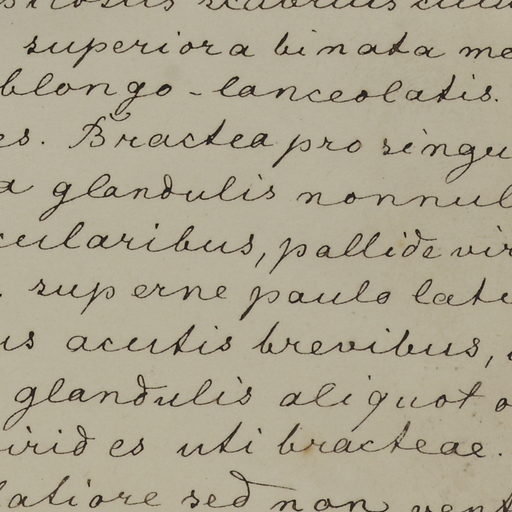 superiora binata me
blongo-lanceolatis.
es. Bractea pro singu
a glandulis nonnul
cularibus, pallide vir
. superne paulo lati
us acutis brevibus,
glandulis aliquot o
irides uti bracteae.
latiore sed non vent